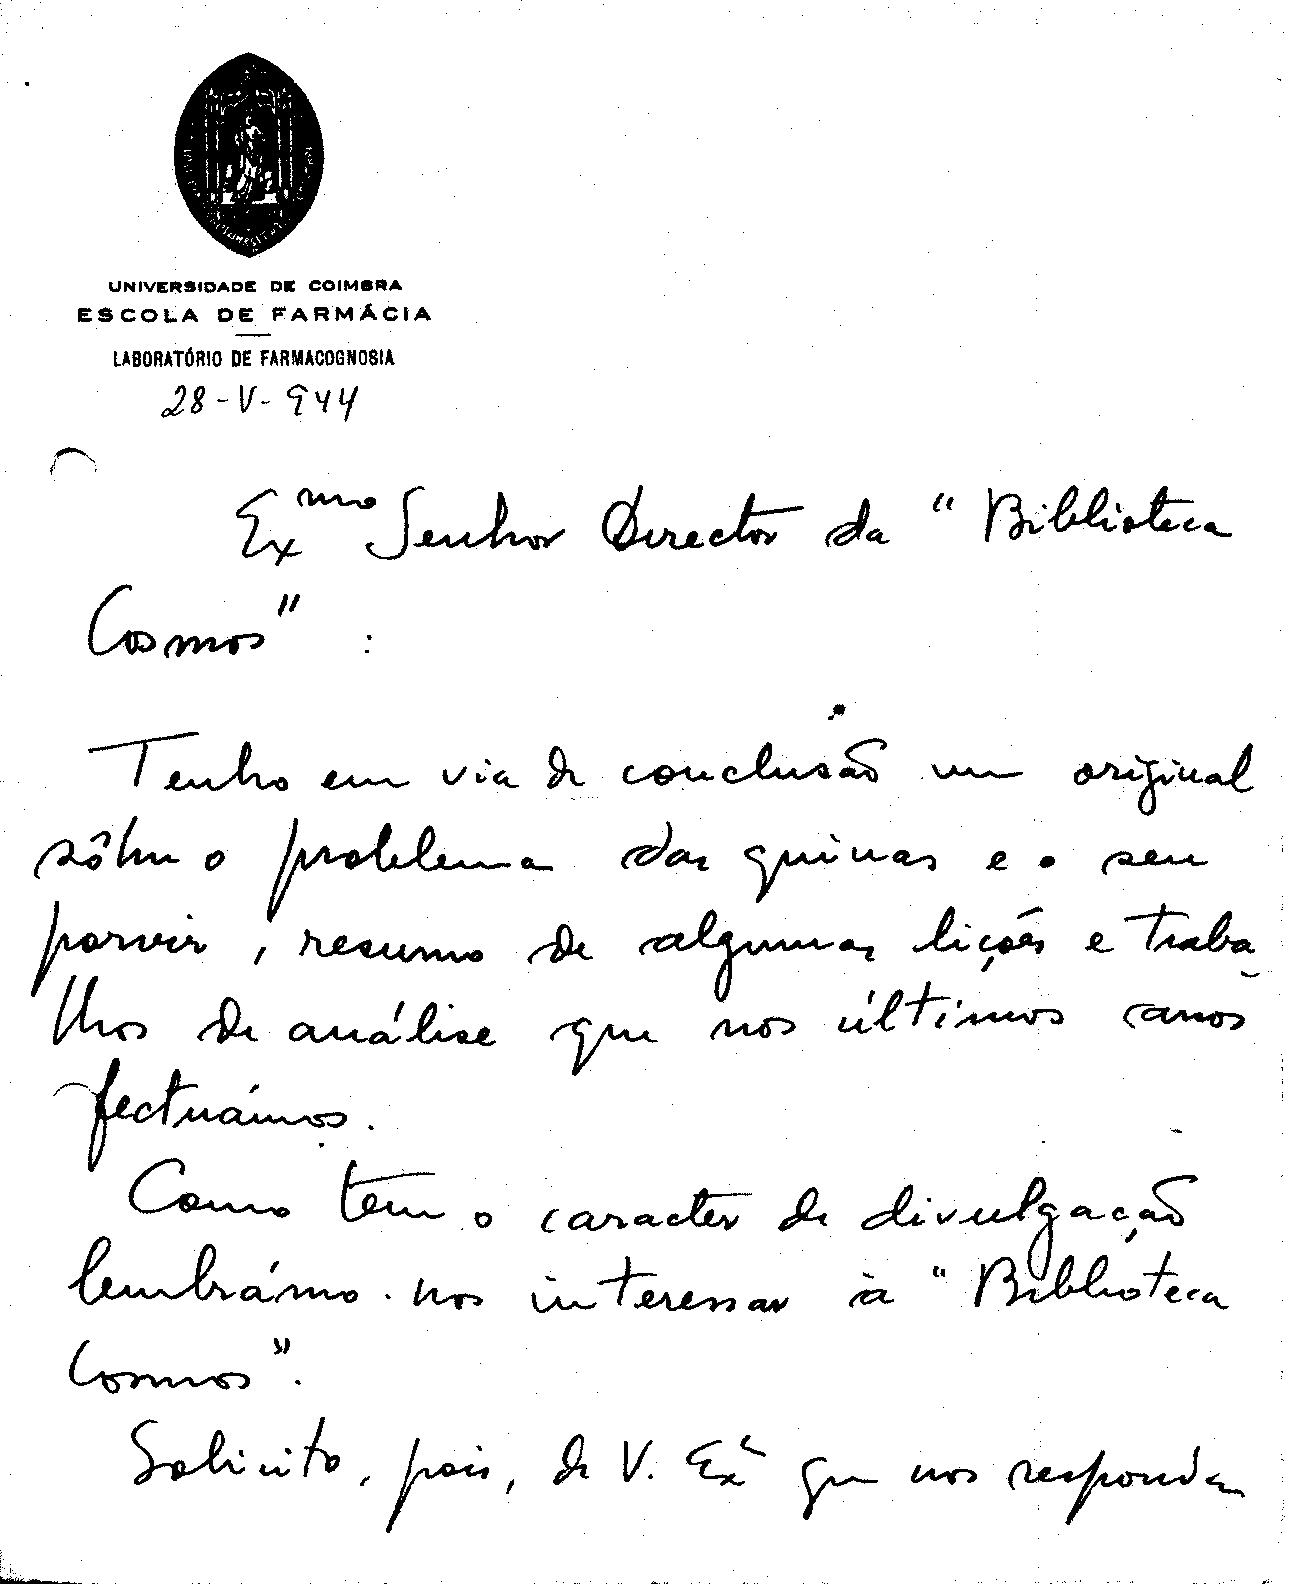 UNIVERSIDADE DE COIMBRA
ESCOLA DE FARMÁCIA
LABORATÓRIO DE FARMACOGNOSIA
28-V-944
Exmo Senhor Director da "Biblioteca
Cosmos" :
Tenho em via de conclusão um original
sôbre o problema das quinas e o seu
porvir, resumo de algumas lições e traba
lhos de análise que nos últimos anos
fectuámos.
Como tem o caracter de divulgação
lembrámo-nos interessar à "Biblioteca
Cosmos".
Solicito, pois, de V. Exª que nos responda